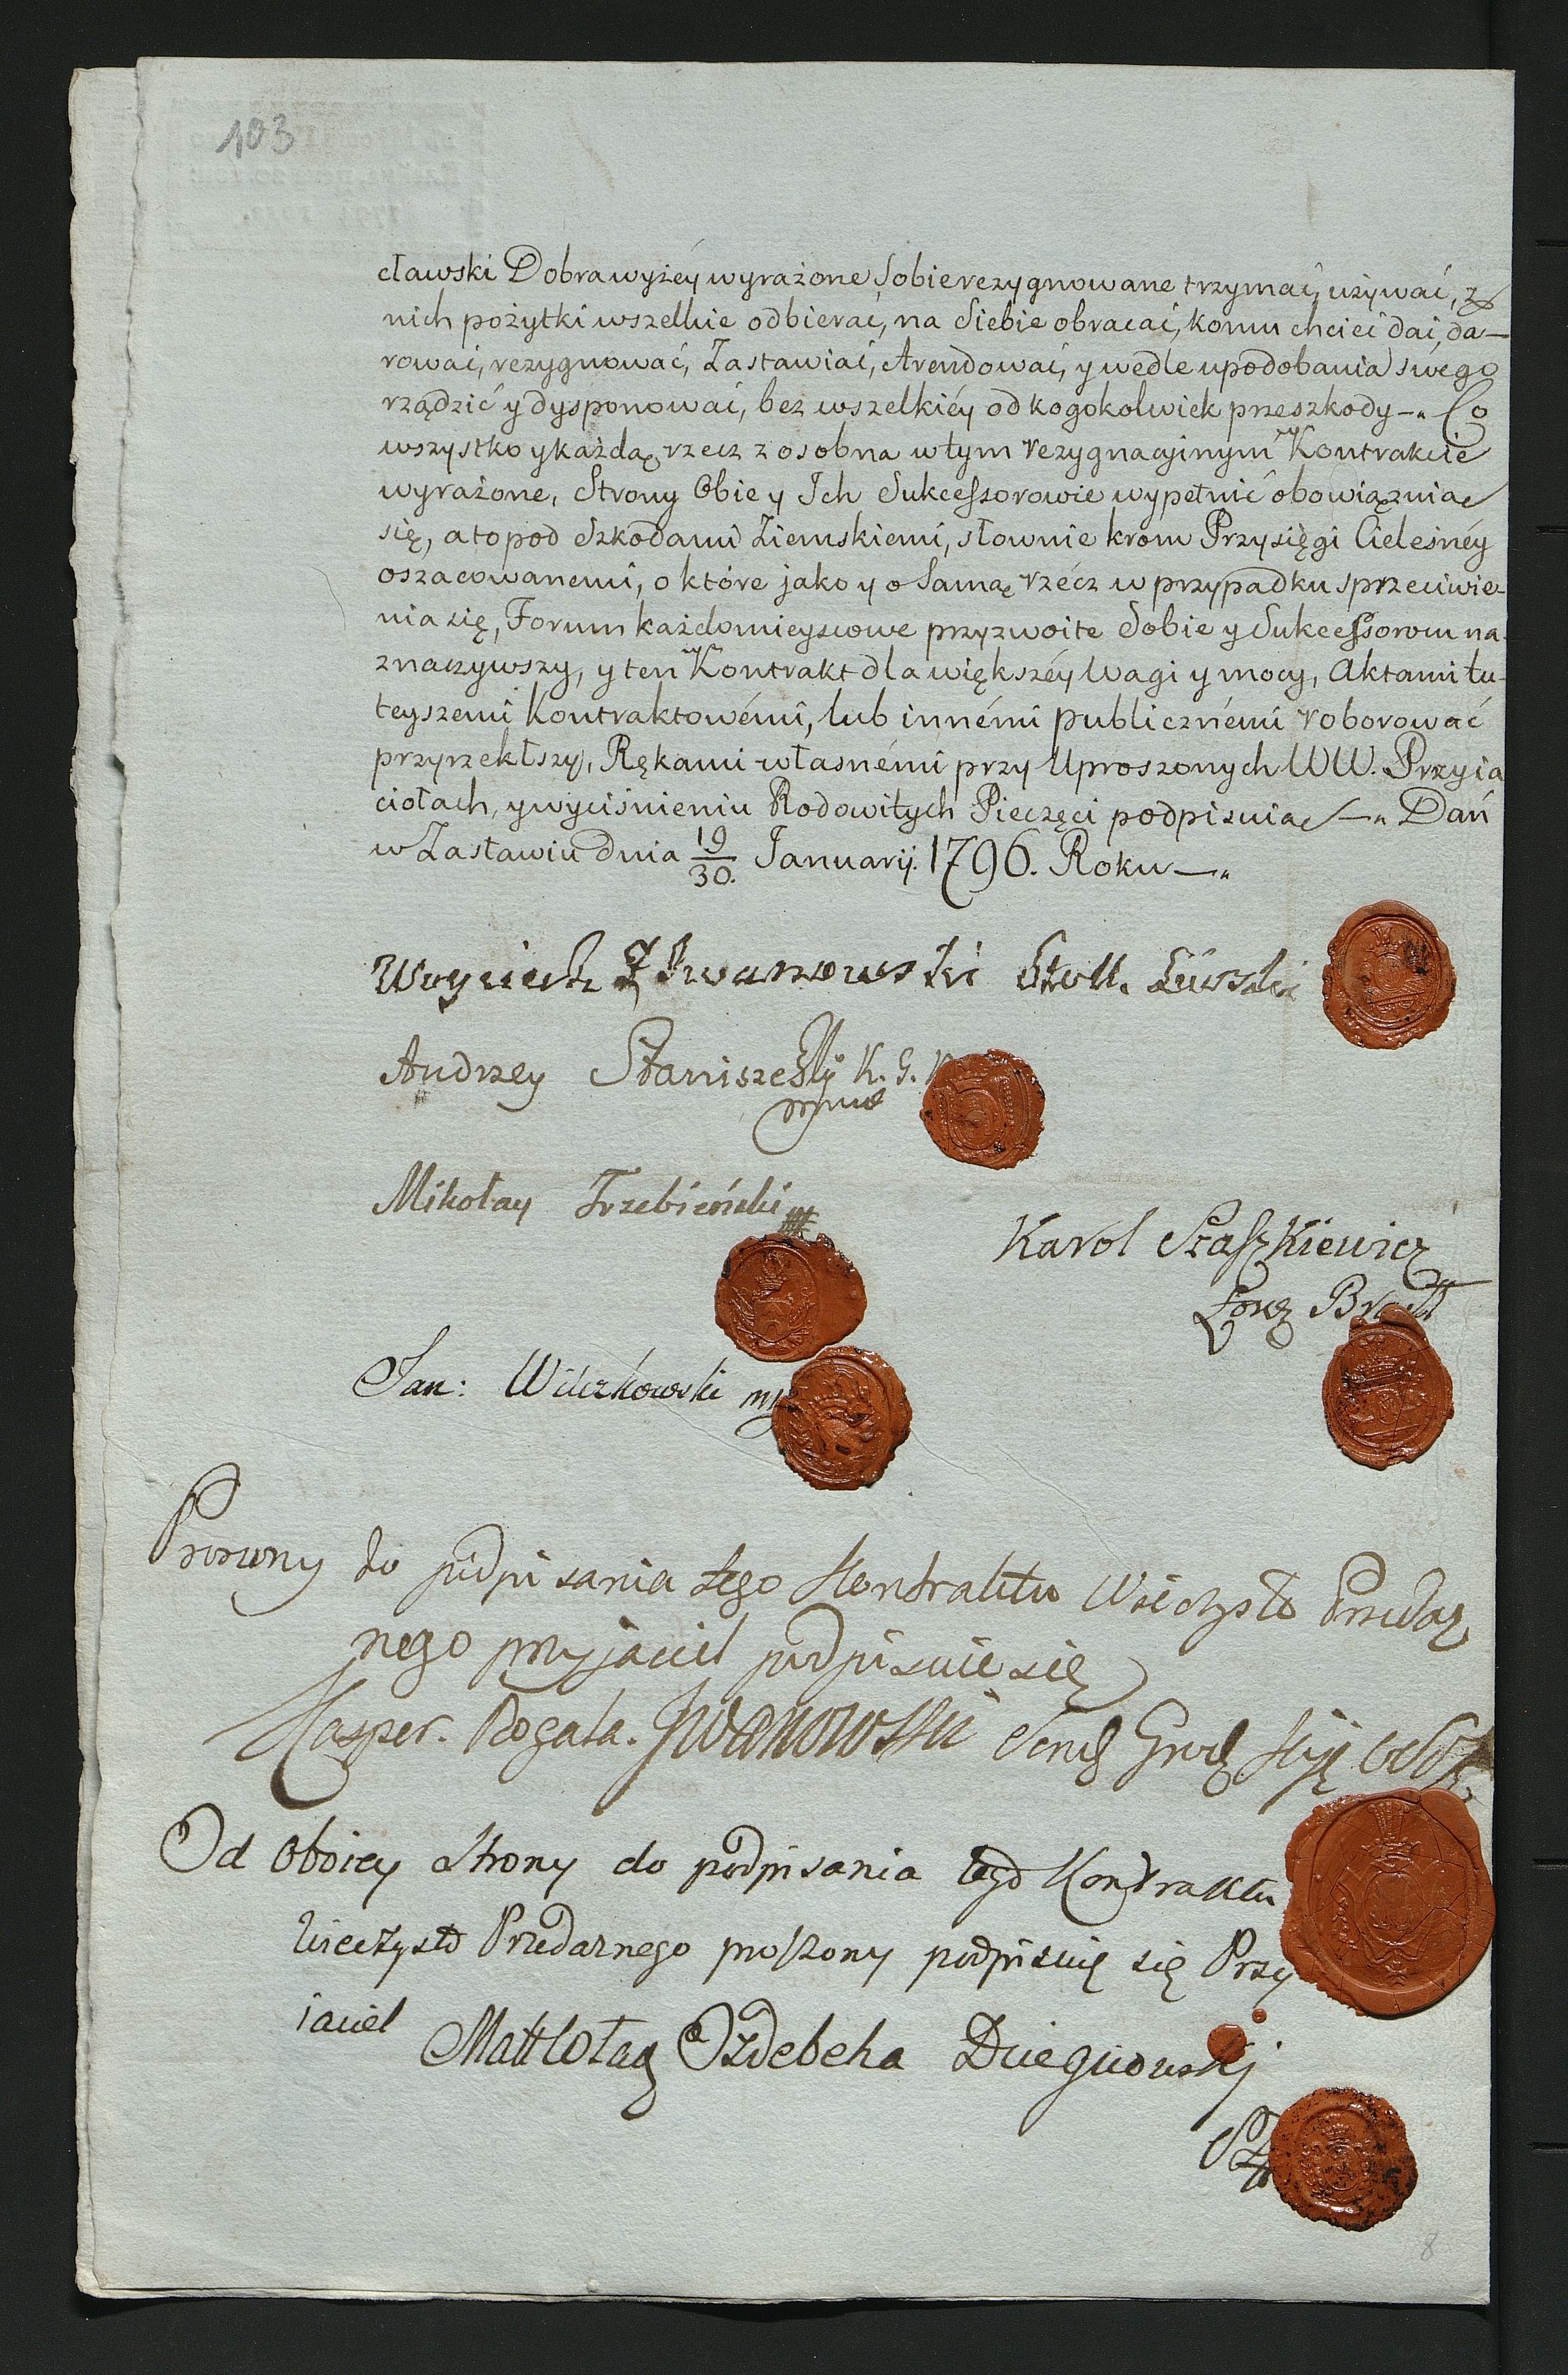 103
cławski Dobra wyżéy wyrażone sobie rezygnowane trzymać, używać, z
nich pożytki wszelkie odbierać, na Siebie obracać, komu chcieć dać, da-
rować, rezygnować, Zastawiać, Arendować, y wedle upodobania swego
rządzić y dysponować, bez wszelkiéy od kogokolwiek przeszkody —„ Co
wszystko y każdą rzecz z osobna w tym rezygnacyinym Kontrakcie
wyrażone, Strony Obie y Ich Sukcessorowie wypełnić obowiązuią
się, a to pod Szkodami Ziemskiemi, słownie krom Przysięgi Cielesnéy
oszacowanemi, o które jako y o Samą rzécz w przypadku sprzeciwie-
nia się, Forum każdomieyscowe przyzwoite Sobie y Sukcessorom na-
znaczywszy, y ten Kontrakt dla większéy Wagi y mocy, Aktami tu-
teyszemi Kontraktowémi, lub innémi publicznémi roborować
przyrzekłszy, Rękami własnémi przy Uproszonych WW. Przyia
ciołach, y wyciśnieniu Rodowitych Pieczęci podpisuią —„ Dań
w Zasławiu dnia 19/30. Januarij. 1796. Roku —„
Woyciech Iwanowski
Andrzey Staniszewski K. G.
Mikołay Trzebiński
Karol Szaszkiewicz
Jan: Wilczkowski
Proszony do podpisania tego Kontraktu Wieczysto Przedaz
nego przyjaciel podpisuie się
Kasper. Rogala. Iwanowski
Od Oboiey Strony do podpisania tego Kontraktu
Wieczysto Przedaznego proszony podpisuię się Przy
iaciel Ozdebeha
8